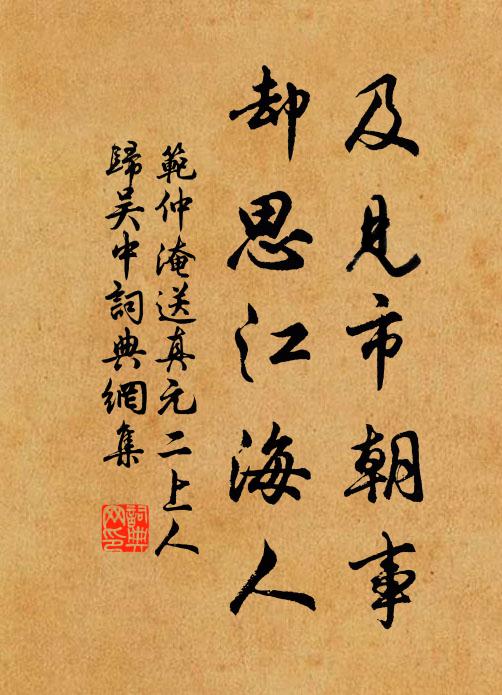 及見市朝事
却思江海人
範仲淹送真元二上人
歸吴中詞典網集
詞典网印